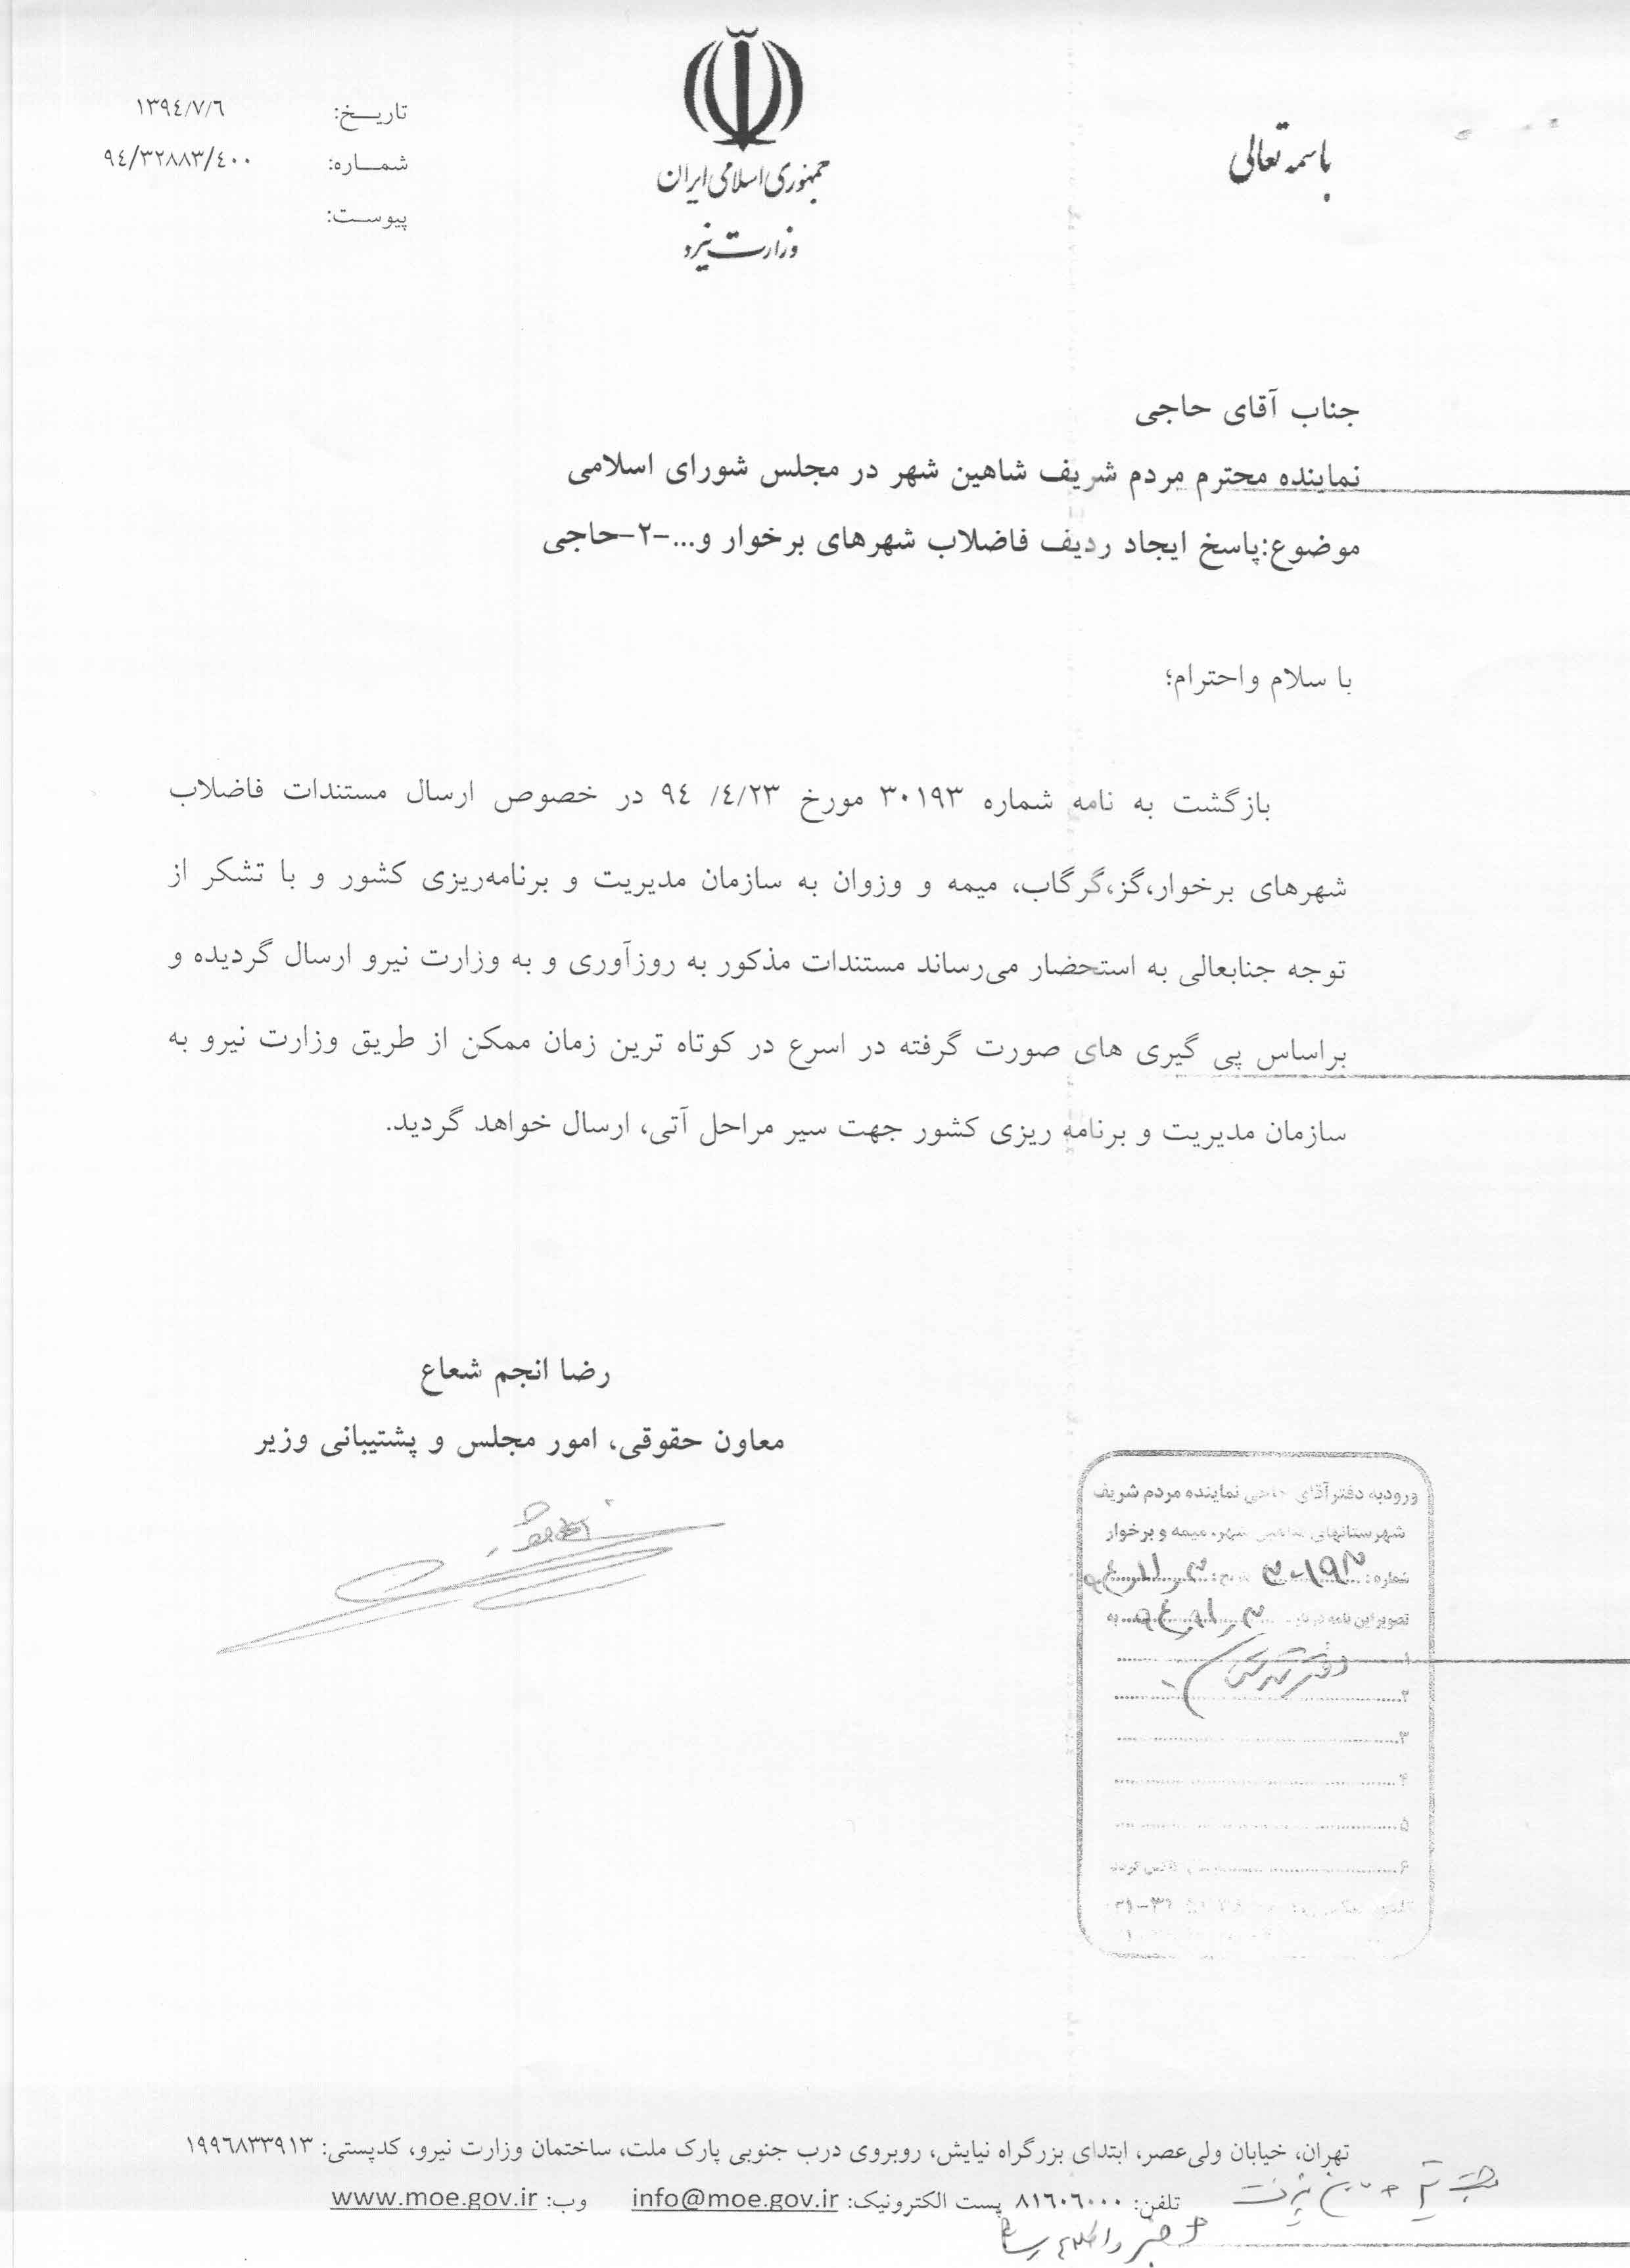 باسمه تعالی
جمهوری اسلامی ایران
وزارت نیرو
تاریخ: ١٣٩٤/٧/٦
شماره: ٩٤/٣٢٨٨٣/٤٠٠
پیوست:
جناب آقای حاجی
نماینده محترم مردم شریف شاهین شهر در مجلس شورای اسلامی
موضوع:پاسخ ایجاد ردیف فاضلاب شهرهای برخوار و...-٢-حاجی
با سلام واحترام؛
بازگشت به نامه شماره ٣٠١٩٣ مورخ ٤/٢٣/ ٩٤ در خصوص ارسال مستندات فاضلاب
شهرهای برخوار،گز،گرگاب، میمه و وزوان به سازمان مدیریت و برنامه‌ریزی کشور و با تشکر از
توجه جنابعالی به استحضار می‌رساند مستندات مذکور به روزآوری و به وزارت نیرو ارسال گردیده و
براساس پی گیری های صورت گرفته در اسرع در کوتاه ترین زمان ممکن از طریق وزارت نیرو به
سازمان مدیریت و برنامه ریزی کشور جهت سیر مراحل آتی، ارسال خواهد گردید.
رضا انجم شعاع
معاون حقوقی، امور مجلس و پشتیبانی وزیر
ورودبه دفترآقای حاجی نماینده مردم شریف
شهرستانهای شاهین شهر، میمه و برخوار
شماره:
تصویر این نامه در تاریخ به
۱
۲
۳
۴
۵
تهران، خیابان ولی‌عصر، ابتدای بزرگراه نیایش، روبروی درب جنوبی پارک ملت، ساختمان وزارت نیرو، کدپستی: ١٩٩٦٨٣٣٩١٣
تلفن: ٨١٦٠٦٠٠٠ پست الکترونیک: info@moe.gov.ir وب: www.moe.gov.ir